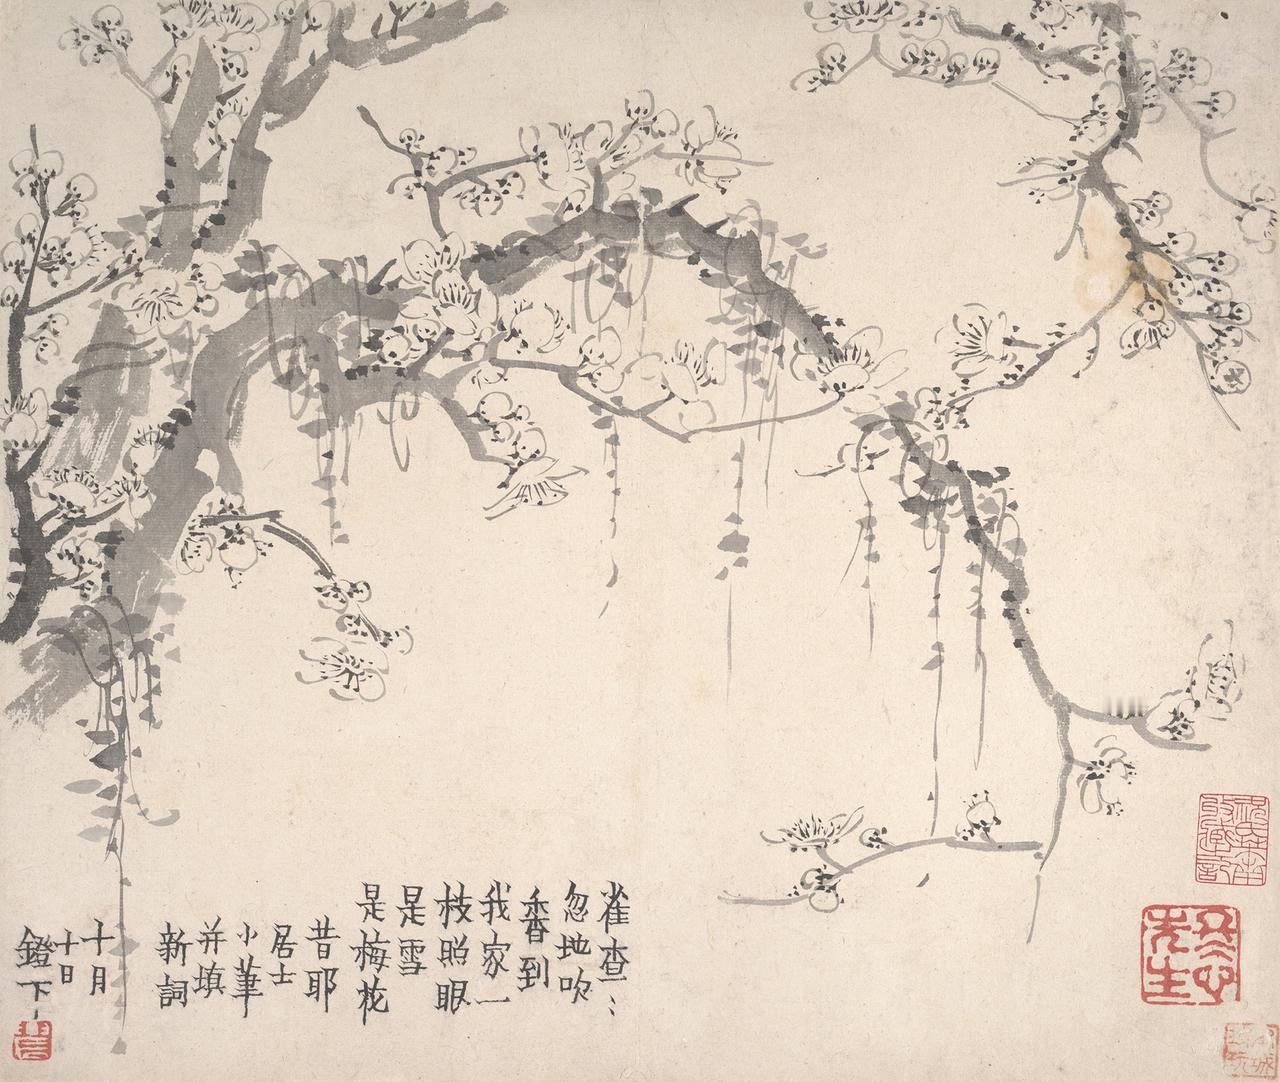 雀查〻
忽地吹
香到
我家一
枝照眼
是雪
是梅花
昔耶
居士
小筆
并填
新詞
十月
十日
鐙下